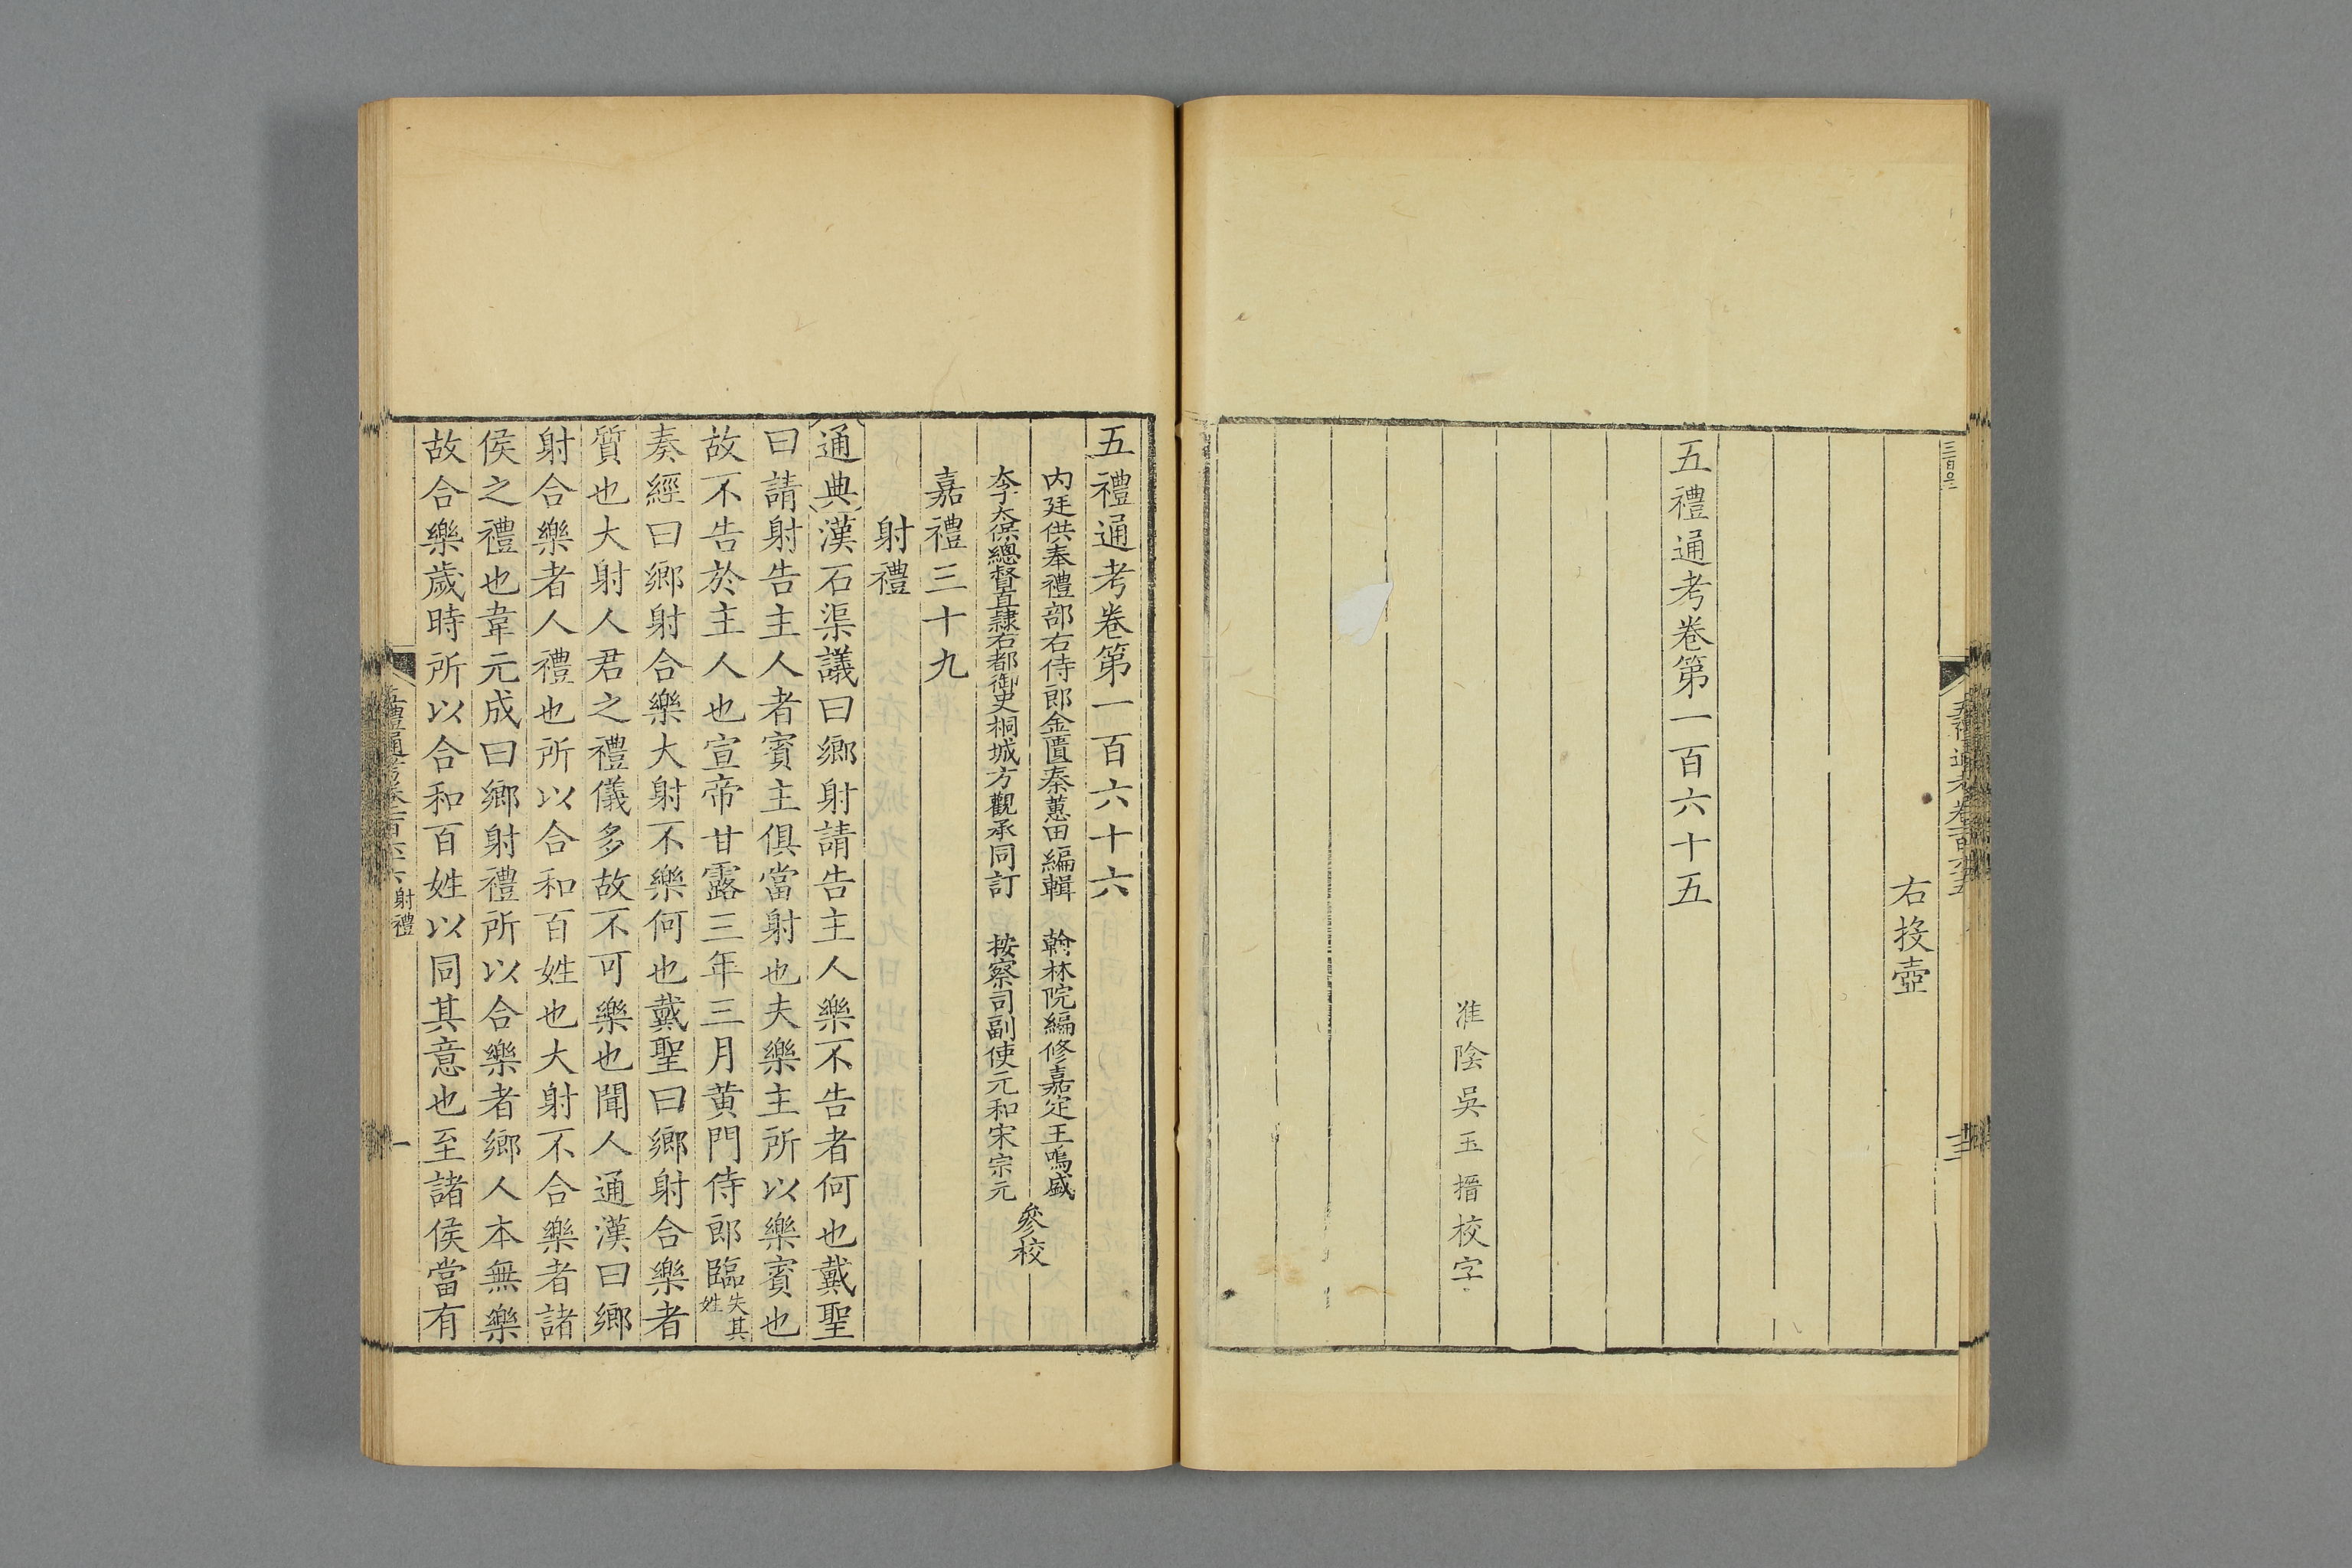 右投壺
五禮通考卷第一百六十五
淮陰吳玉搢校字
五禮通考卷第一百六十六
內廷供奉禮部右侍郎金匱秦蕙田編輯　翰林院編修嘉定王鳴盛
李太保總督直隸右都御史桐城方觀承同訂　按察司副使元和宋宗元
參校
嘉禮三十九
射禮
通典漢石渠議曰鄉射請告主人樂不告者何也戴聖
曰請射告主人者賓主俱當射也夫樂主所以樂賓也
故不告於主人也宣帝甘露三年三月黃門侍郎臨失其姓
奏經曰鄉射合樂大射不樂何也戴聖曰鄉射合樂者
質也大射人君之禮儀多故不可樂也聞人通漢曰鄉
射合樂者人禮也所以合和百姓也大射不合樂者諸
侯之禮也韋元成曰鄉射禮所以合樂者鄉人本無樂
故合樂歲時所以合和百姓以同其意也至諸侯當有
射禮
一